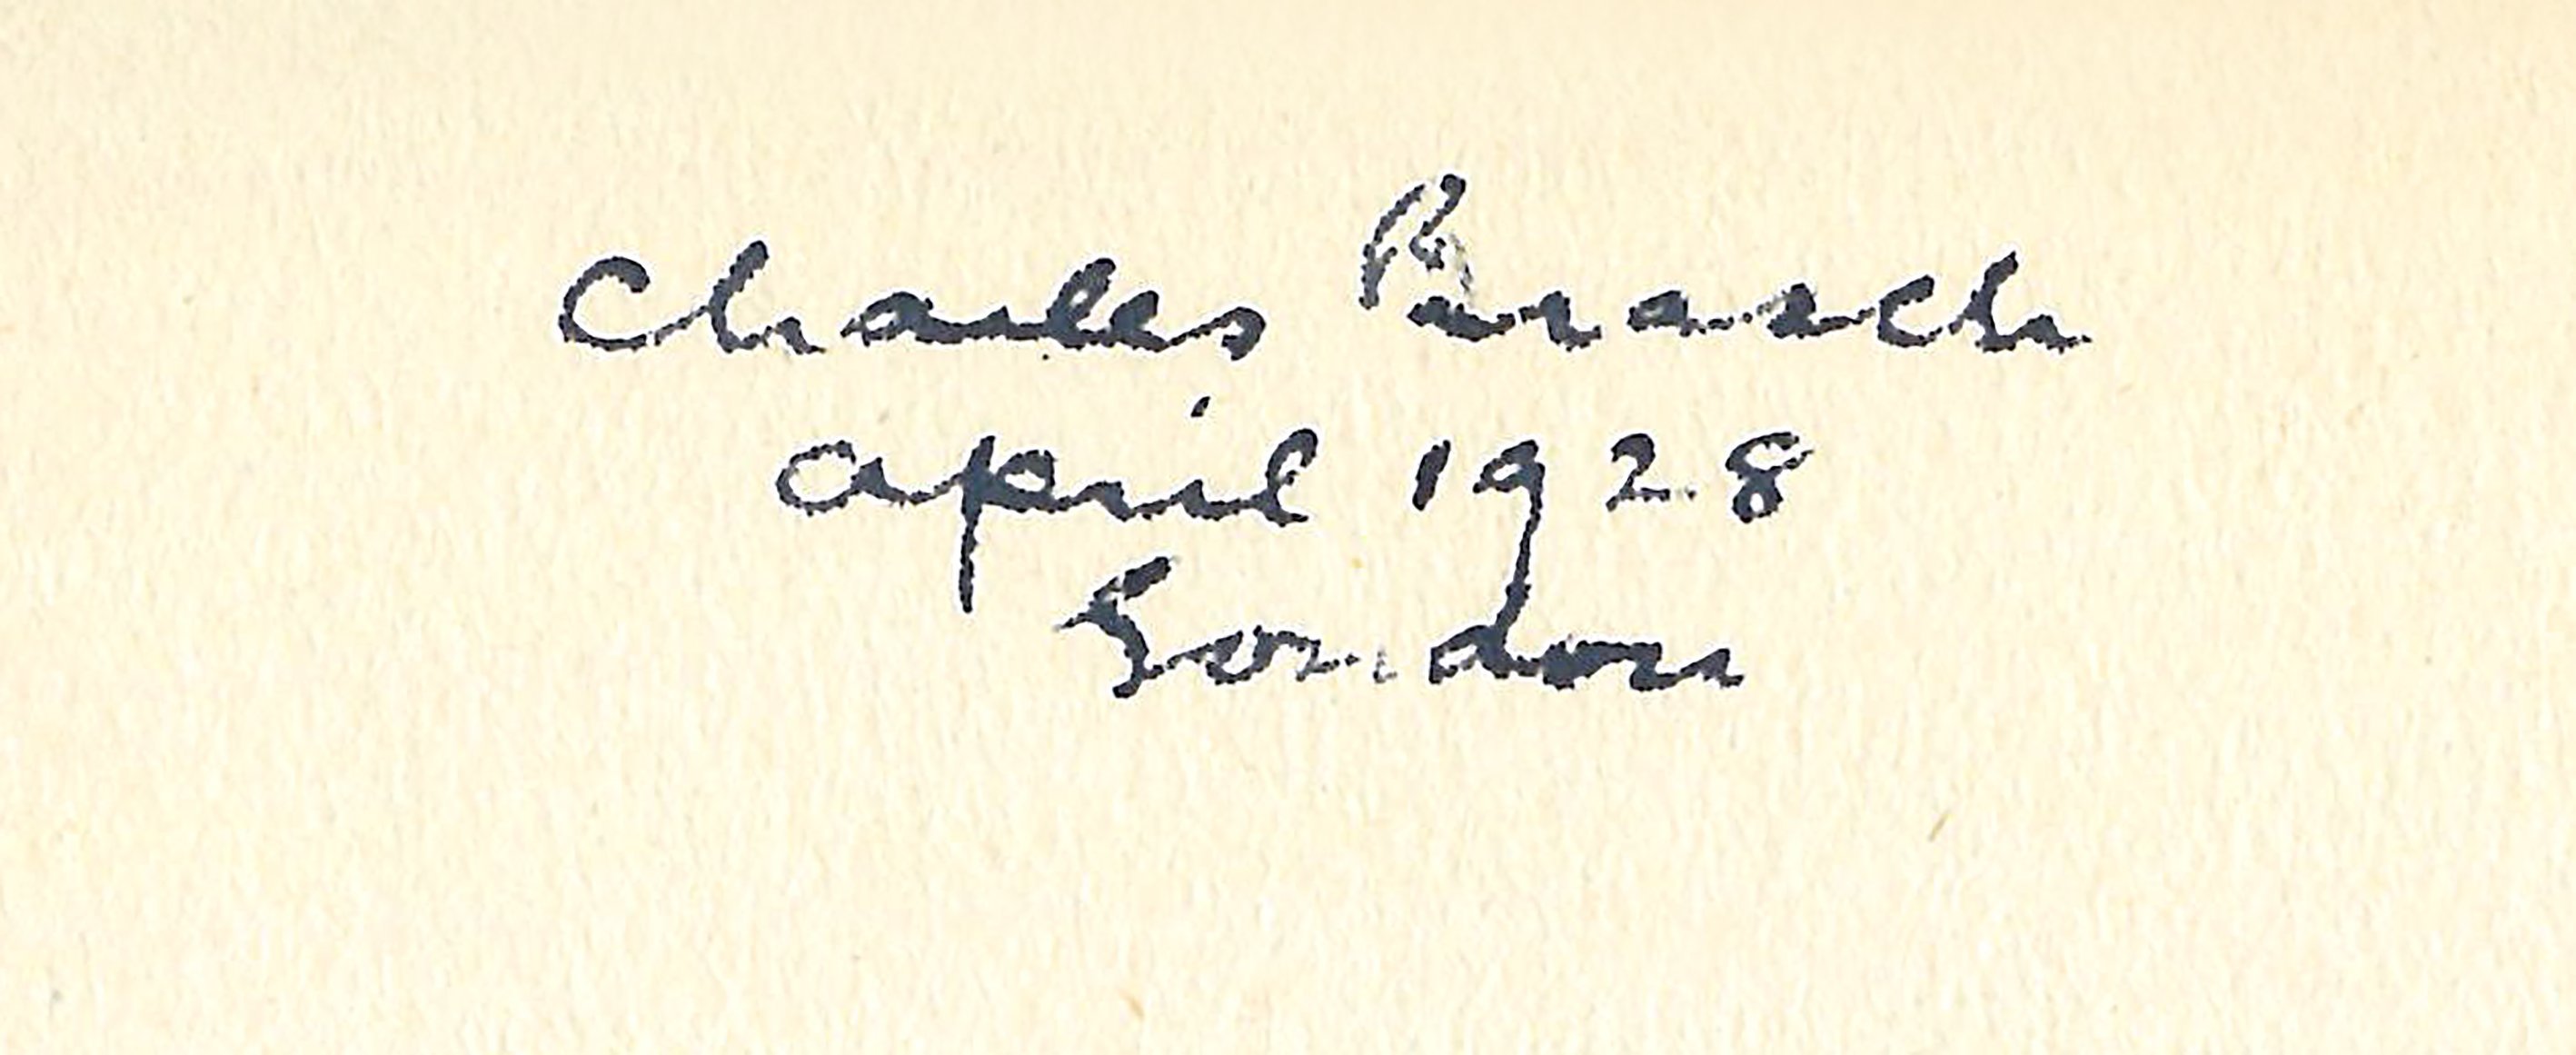 Charles Brasch
april 1928
London